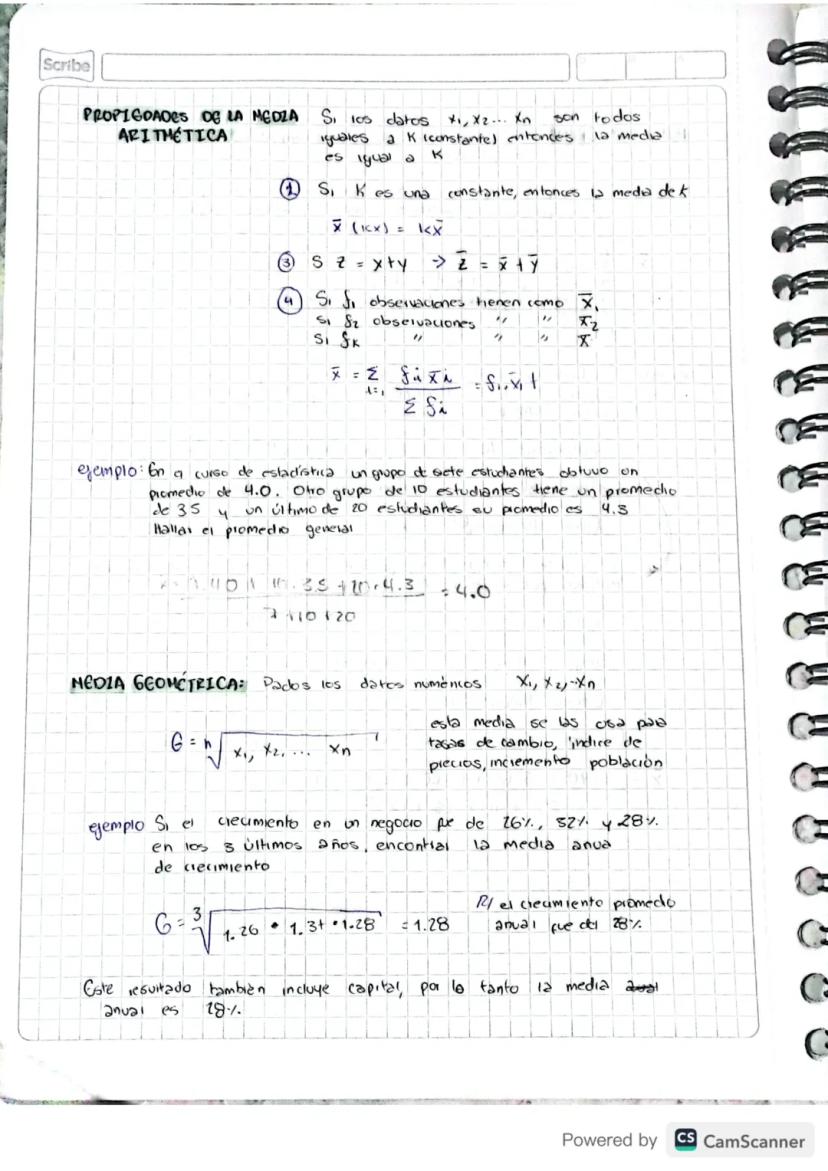 Scribe
PROPIEDADES DE LA MEDIA Si los datos x1, x2... xn son todos
ARITMÉTICA iguales a K (constante) entonces la media
es igual a K
① Si K es una constante, entonces la media de k
x̄ (kx) = kx̄
③ S Z = x+y → Z̄ = x̄ + ȳ
④ Si f1 observaciones tienen como x̄1
Si f2 observaciones " " x̄2
Si fK " " " x̄
x̄ = Σ i=1 fi x̄i / Σ fi = f1.x̄1 +
ejemplo: En a curso de estadística un grupo de siete estudiantes obtuvo un
promedio de 4.0. Otro grupo de 10 estudiantes tiene un promedio
de 35 y un último de 20 estudiantes su promedio es 4.3
Hallar el promedio general
40 + 10 . 3.5 + 20 . 4.3 = 4.0
7 + 10 + 20
MEDIA GEOMÉTRICA: Dados los datos numéricos x1, x2, ..xn
G = n√ x1, x2, ... xn
esta media se las usa para
tasas de cambio, índice de
precios, incremento población
ejemplo Si el crecimiento en un negocio fue de 26%, 32% y 28%.
en los 3 últimos años, encontrar la media anua
de crecimiento
G = 3√ 1.26 • 1.3+ • 1.28 = 1.28
R/ el crecimiento promedio
anual fue del 28%
Este resultado también incluye capital, por lo tanto la media
anual es 28%.
Powered by CS CamScanner